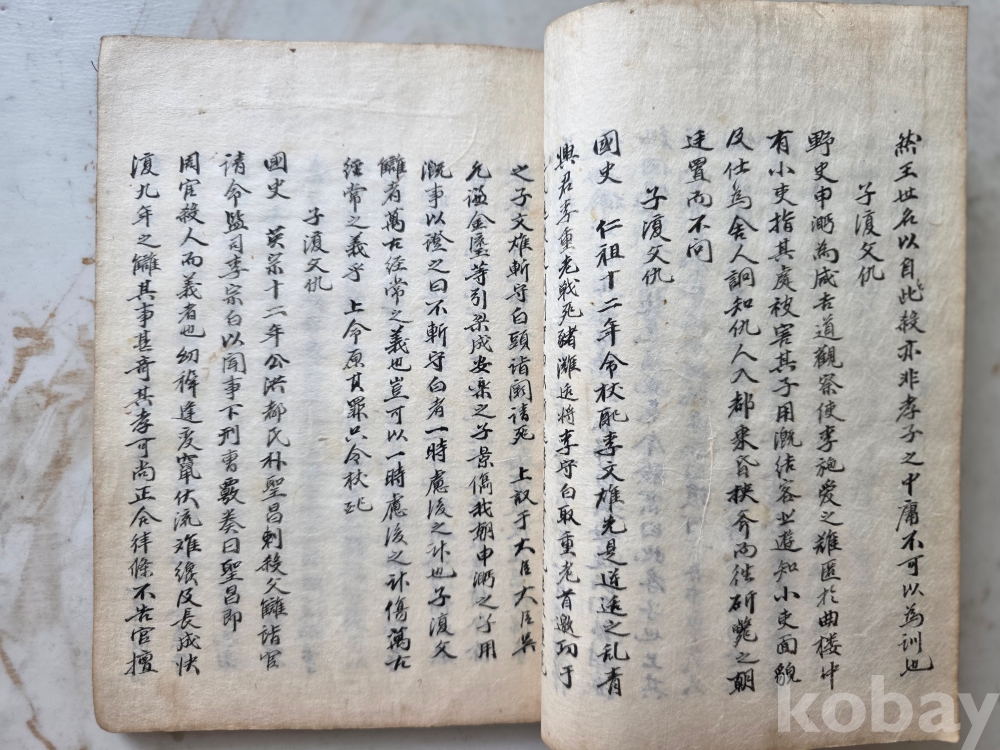 然王世名以自此殺亦非孝子之中庸不可以為訓也
子復父仇
野史申㴐為咸吉道觀察使李施愛之難匿於曲楼中
有小吏指其處被害其子用溉結客出遊知小吏面貌
及仕為舍人詗知仇人入都乗昏挾斧而徃斫斃之朝
廷置而不问
子復父仇
國史 仁祖十二年命杖配李文雄先是逆适之乱青
興君李重老戦死豬灘适將李守白取重老首邀功于
之子文雄斬守白頭诣闕请死 上𠮟于大臣大臣吳
允谦金瑬等引梁成安樂之子景儁我朝申㴐之子用
溉事以證之曰不斬守白者一時慮後之计也子復父
讎者萬古經常之義也豈可以一時慮後之计傷萬古
經常之義乎 上令原其罪只令杖配
子復父仇
國史 英宗十二年公洪都民朴聖昌刺殺父讎诣官
请命監司李宗白以闻事下刑曹覈奏曰聖昌即
周官殺人而義者也幼稚逢变竄伏流难纔及長成快
復九年之讎其事甚奇其孝可尚正合律條不告官擅
kobay